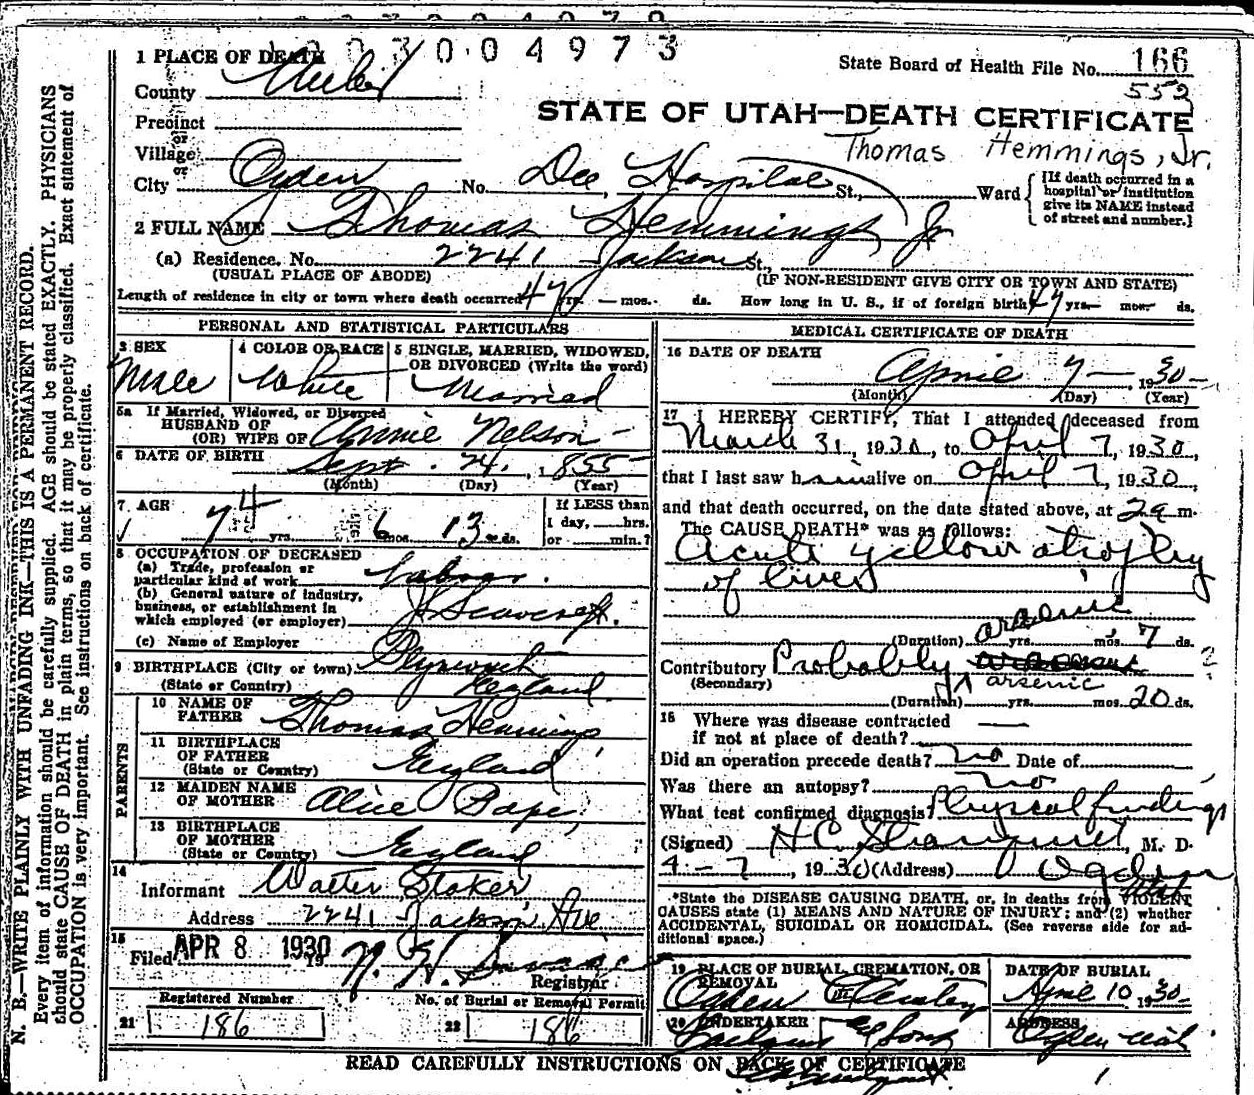 3004973
1 PLACE OF DEATH
State Board of Health File No. 166
552
County Weber
STATE OF UTAH—DEATH CERTIFICATE
Precinct
or
Village
Thomas Hemmings, Jr.
or
City Ogden No. Dee Hospital St., Ward {[If death occurred in a hospital or institution give its NAME instead of street and number.]
2 FULL NAME Thomas Hemmings Jr
(a) Residence. No. 2241 Jackson St.,
(USUAL PLACE OF ABODE) (IF NON-RESIDENT GIVE CITY OR TOWN AND STATE)
Length of residence in city or town where death occurred 47 yrs. — mos. ds. How long in U. S., if of foreign birth 47 yrs— mos— ds.
PERSONAL AND STATISTICAL PARTICULARS
3 SEX
Male
4 COLOR OR RACE
White
5 SINGLE, MARRIED, WIDOWED,
OR DIVORCED (Write the word)
Married
5a If Married, Widowed, or Divorced
HUSBAND OF
(OR) WIFE OF Annie Nelson
6 DATE OF BIRTH Sept. 24, 1855
(Month) (Day) (Year)
7 AGE
74 yrs. 6 mos. 13 ds.
If LESS than
1 day, hrs.
or min.?
8 OCCUPATION OF DECEASED
(a) Trade, profession or
particular kind of work Labor.
(b) General nature of industry,
business, or establishment in
which employed (or employer) J Scowcroft.
(c) Name of Employer
9 BIRTHPLACE (City or town) Plymouth
(State or Country) England
PARENTS
10 NAME OF
FATHER Thomas Hemmings
11 BIRTHPLACE
OF FATHER
(State or Country) England
12 MAIDEN NAME
OF MOTHER Alice Pape,
13 BIRTHPLACE
OF MOTHER
(State or Country) England
14
Informant Walter Stoker
Address 2241 Jackson Ave
15
Filed APR 8 1930 19
Registrar
Registered Number
21 186
No. of Burial or Removal Permit
22 186
MEDICAL CERTIFICATE OF DEATH
16 DATE OF DEATH
April 7— 1930—
(Month) (Day) (Year)
17 I HEREBY CERTIFY, That I attended deceased from
March 31, 1930, to April 7, 1930,
that I last saw him alive on April 7, 1930,
and that death occurred, on the date stated above, at 2a m.
The CAUSE DEATH* was as follows:
Acute yellow atrophy
of liver
arsenic
(Duration) yrs. mos. 7 ds.
Contributory Probably ?
(Secondary) arsenic
(Duration) yrs. mos. 20 ds.
18 Where was disease contracted
if not at place of death?
Did an operation precede death? no Date of
Was there an autopsy? no
What test confirmed diagnosis? Physical findings
(Signed) H.C. Stranquist, M. D.
4-7, 1930 (Address) Ogden
Utah
*State the DISEASE CAUSING DEATH, or, in deaths from VIOLENT
CAUSES state (1) MEANS AND NATURE OF INJURY; and (2) whether
ACCIDENTAL, SUICIDAL OR HOMICIDAL. (See reverse side for ad-
ditional space.)
19 PLACE OF BURIAL, CREMATION, OR
REMOVAL
Ogden
DATE OF BURIAL
April 10 1930
20 UNDERTAKER
& Sons
ADDRESS
Ogden Utah
READ CAREFULLY INSTRUCTIONS ON BACK OF CERTIFICATE
N. B.—WRITE PLAINLY WITH UNFADING INK—THIS IS A PERMANENT RECORD.
Every item of information should be carefully supplied. AGE should be stated EXACTLY. PHYSICIANS
should state CAUSE OF DEATH in plain terms, so that it may be properly classified. Exact statement of
OCCUPATION is very important. See instructions on back of certificate.